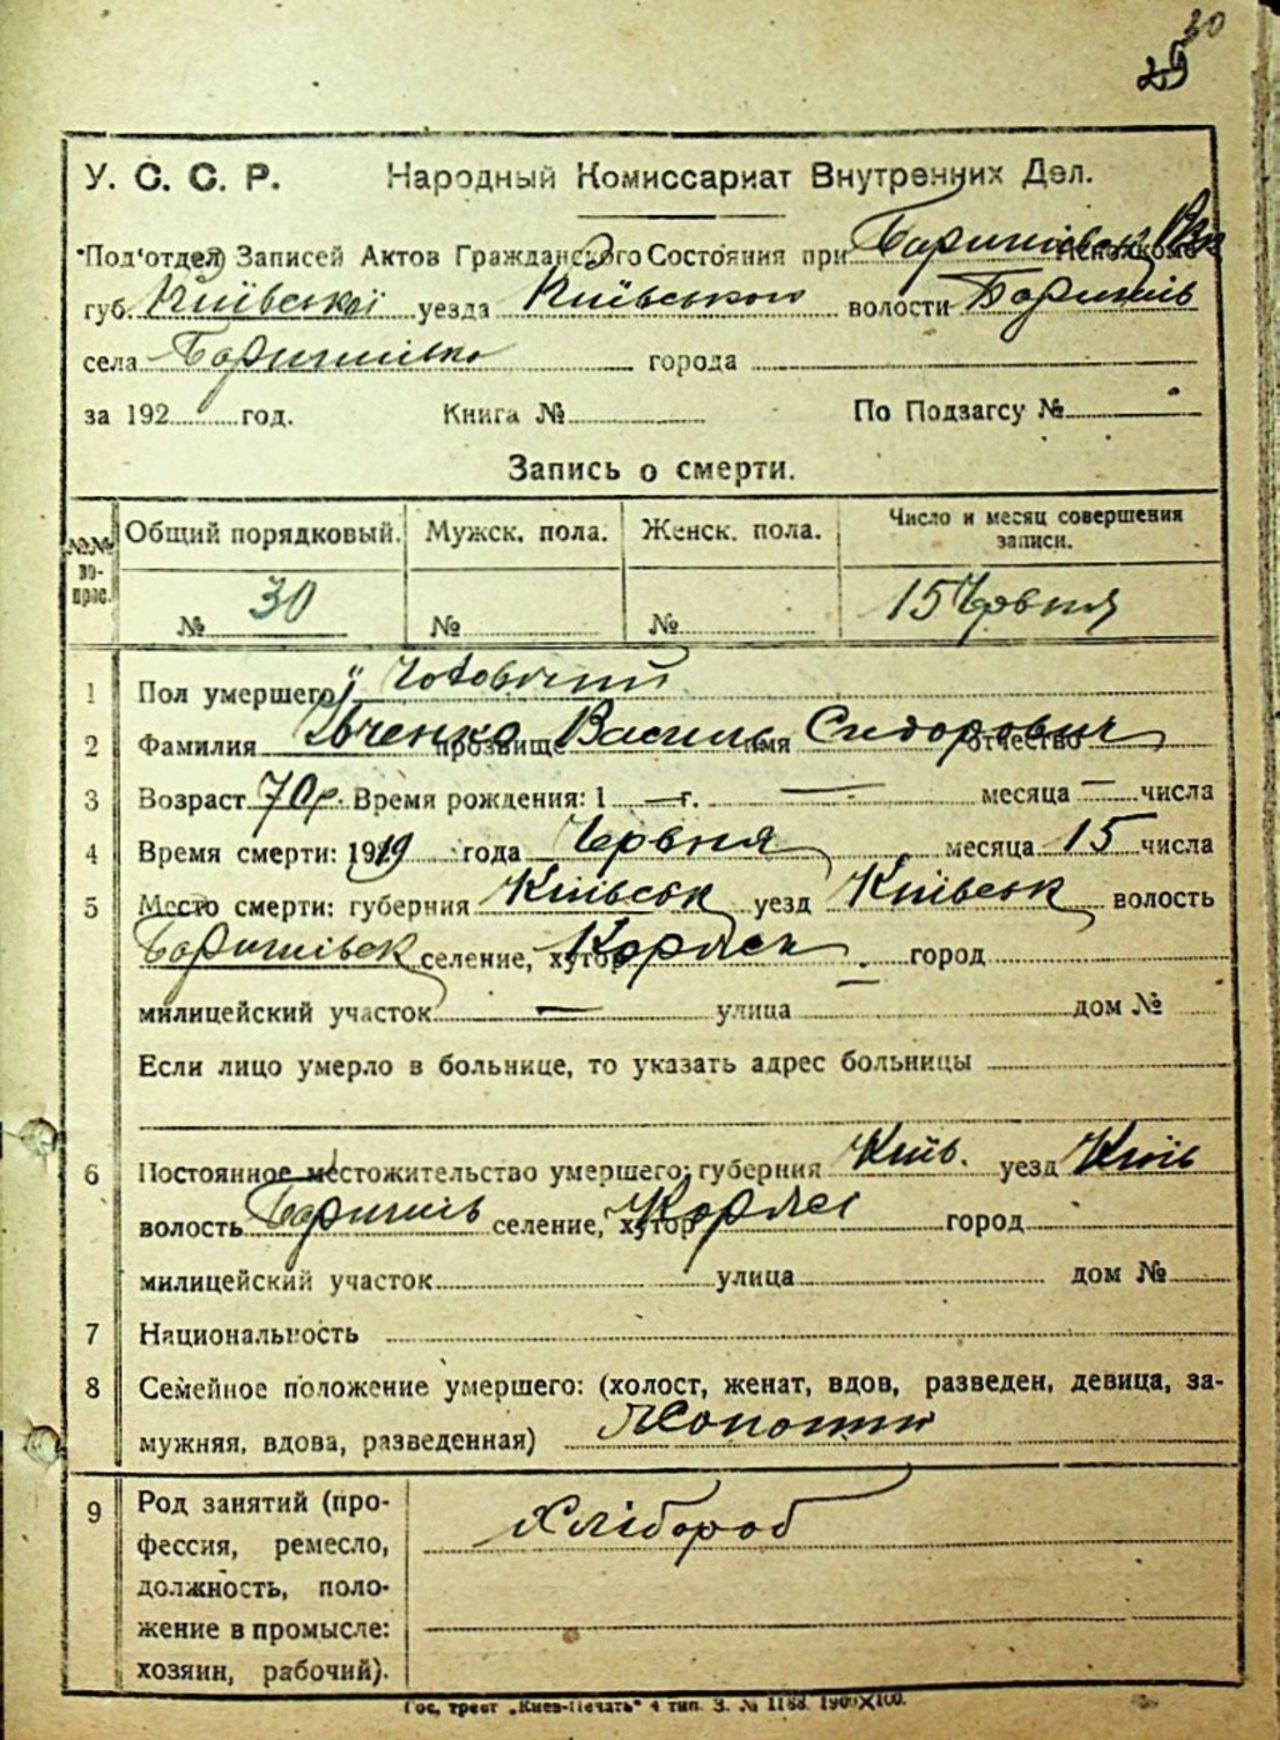 30
29
У. С. С. Р. Народный Комиссариат Внутренних Дел.
Под'отдел Записей Актов Гражданского Состояния при Исполкоме
губ. Київської уезда Київського волости Баришів
села Баришівка города
за 192 год. Книга № По Подзагсу №
Запись о смерти.
№№ вопрос. Общий порядковый. Мужск. пола. Женск. пола. Число и месяц совершения записи.
№ 30 № № 15 Червня
1 Пол умершего Чоловічий
2 Фамилия Івченко прозвище Василь имя Сидорович отчество
3 Возраст 70 р. Время рождения: 1 — г. — месяца — числа
4 Время смерти: 1919 года Червня месяца 15 числа
5 Место смерти: губерния Київськ уезд Київськ волость
Баришівськ селение, хутор город
милицейский участок — улица дом №
Если лицо умерло в больнице, то указать адрес больницы
6 Постоянное местожительство умершего: губерния Київ. уезд Київ
волость Баришів селение, хутор город
милицейский участок улица дом №
7 Национальность
8 Семейное положение умершего: (холост, женат, вдов, разведен, девица, за-
мужняя, вдова, разведенная)
9 Род занятий (про- Хлібороб
фессия, ремесло,
должность, поло-
жение в промысле:
хозяин, рабочий).
Гос. трест „Киев-Печать" 4 тип. З. № 1188.